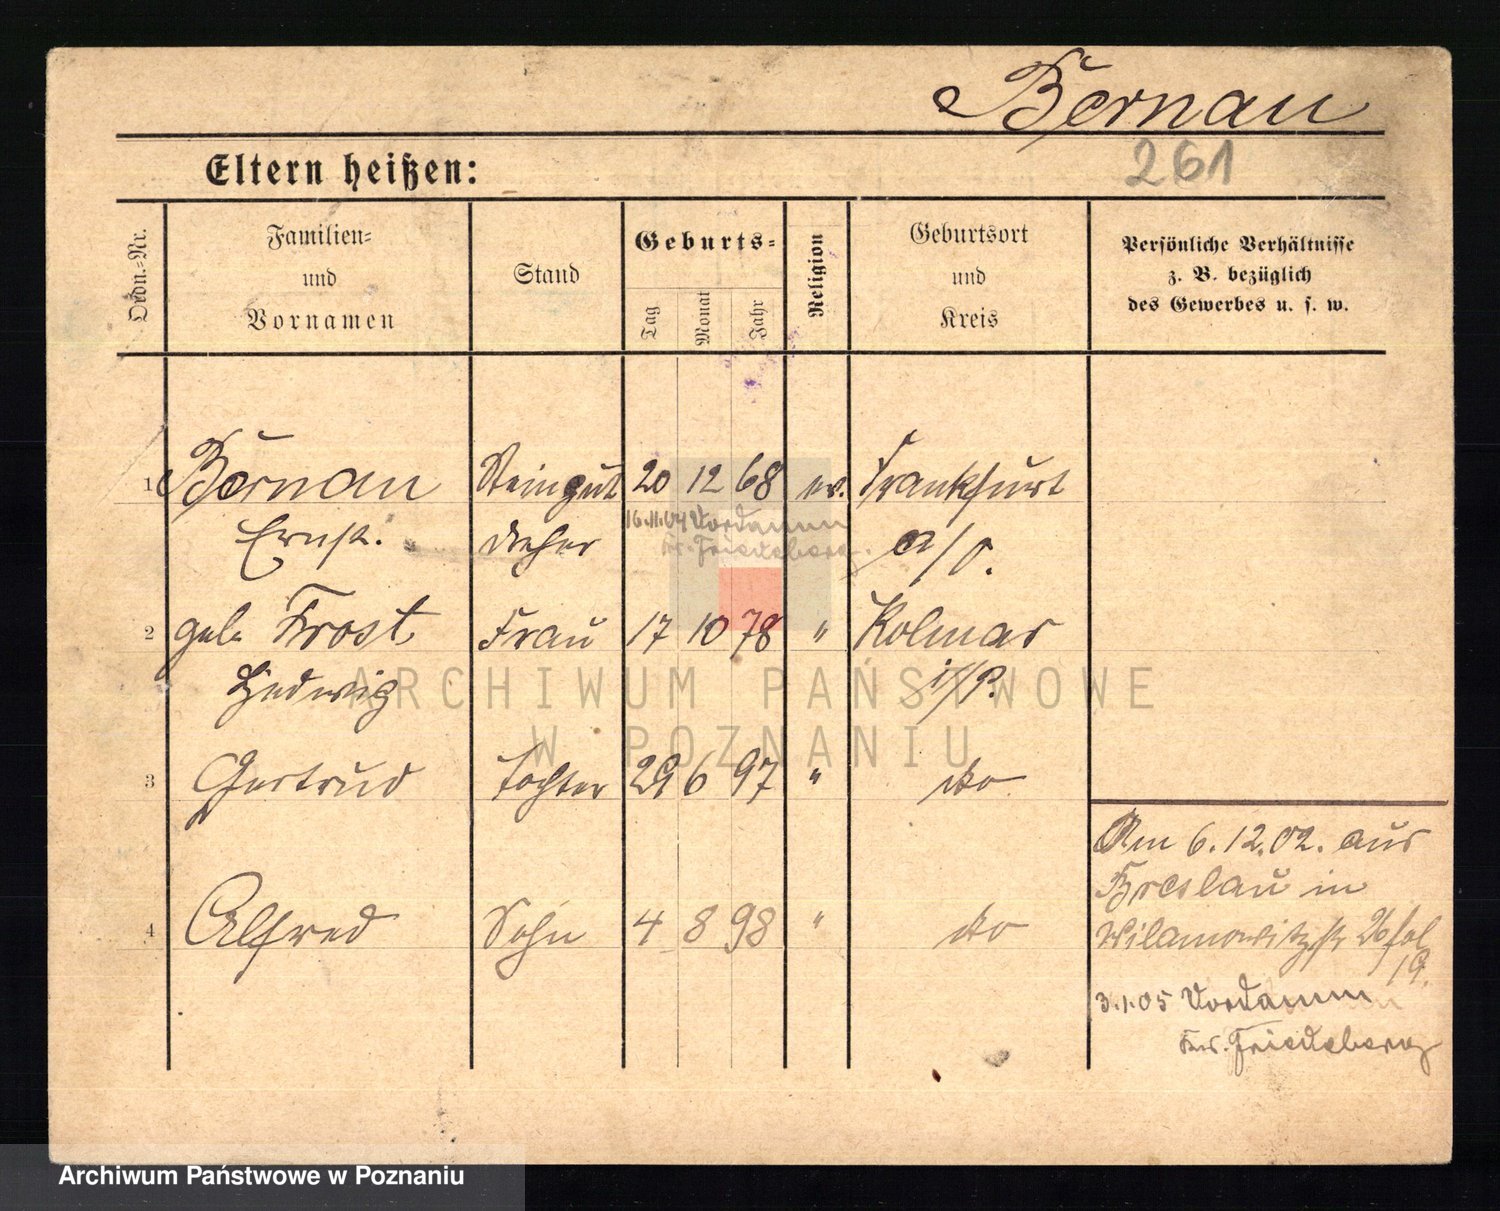 Bernau
261
Eltern heißen:
Ordn.-Nr.
Familien-
und
Vornamen
Stand
Geburts-
Tag
Monat
Jahr
Religion
Geburtsort
und
Kreis
Persönliche Verhältnisse
z. B. bezüglich
des Gewerbes u. s. w.
1 Bernau Steingut 20 12 68 ev. Frankfurt
16.11.04 Vordamm
Ernst. dreher a/O.
Kr. Friedeberg.
2 geb. Frost Frau 17 10 78 " Kolmar
Hedwig i/P.
3 Gertrud Tochter 29 6 97 " do
4 Alfred Sohn 4 8 98 " do
Am 6.12.02. aus
Breslau in
Wilamowitzstr 26 fol
19.
3.1.05 Vordamm
Kr. Friedeberg
ARCHIWUM PAŃSTWOWE
W POZNANIU
Archiwum Państwowe w Poznaniu